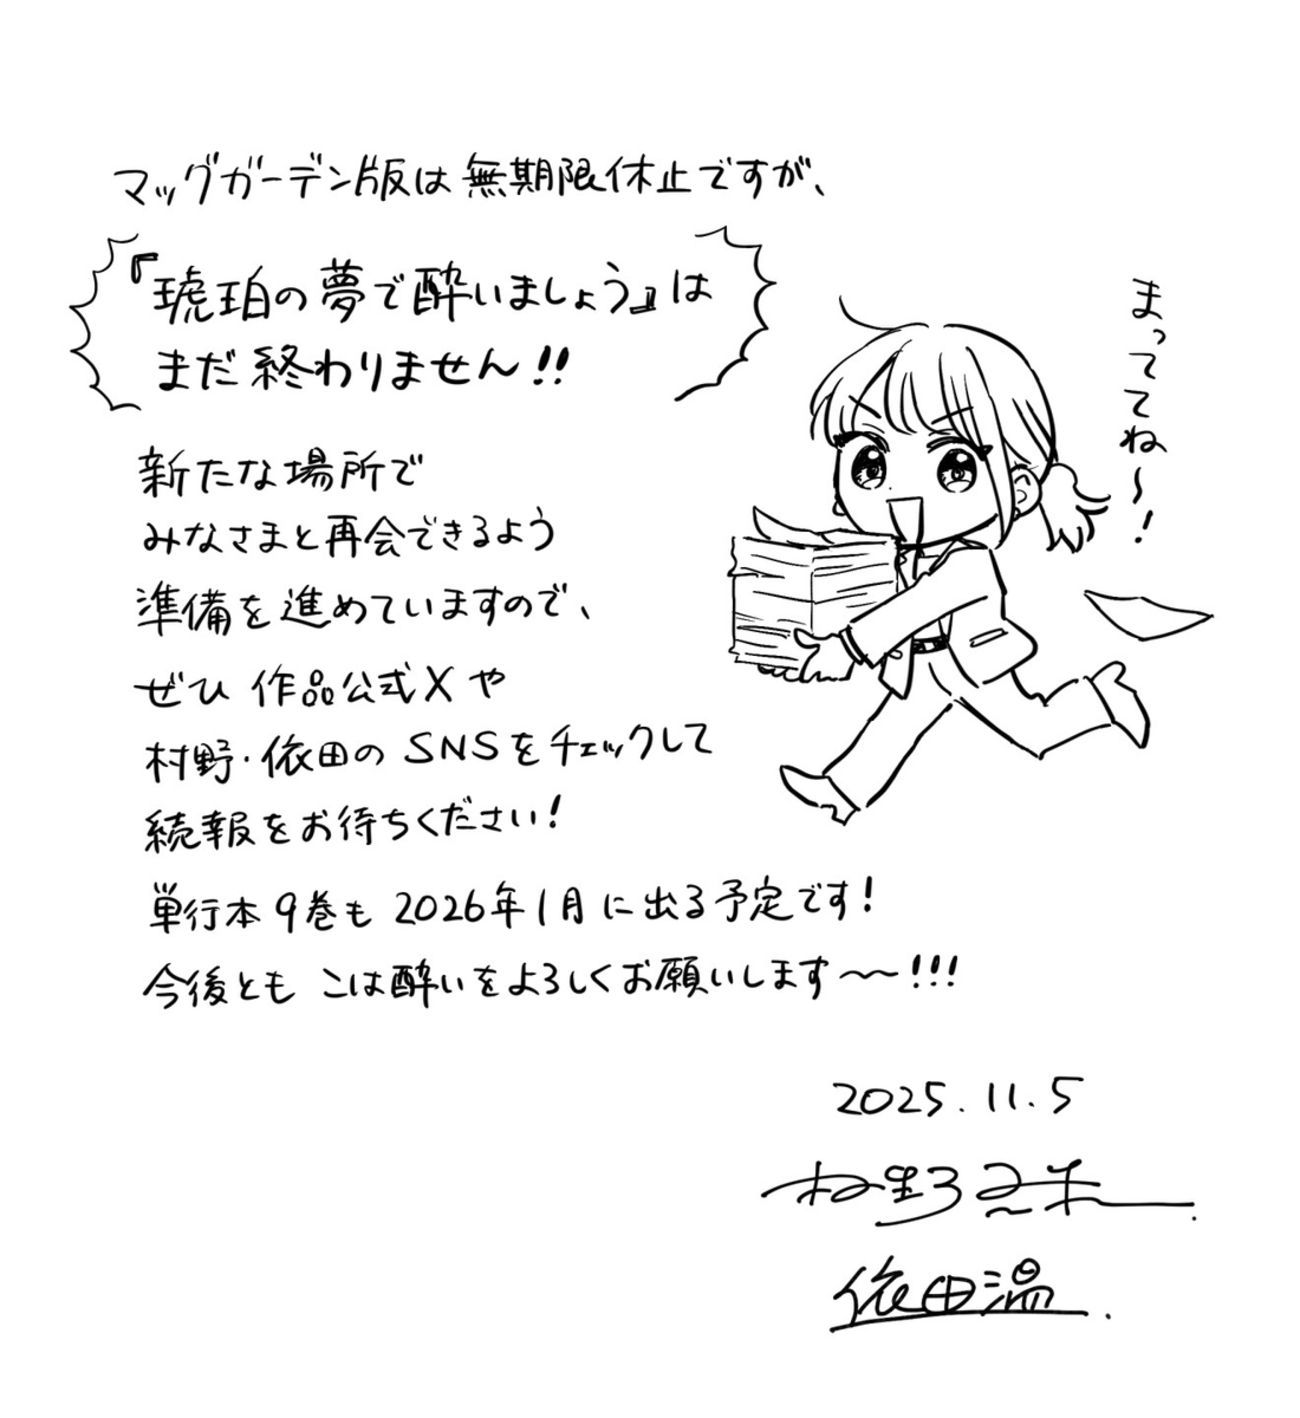 マッグガーデン版は無期限休止ですが、
『琥珀の夢で酔いましょう』は
まだ終わりません!!
まっててね〜!
新たな場所で
みなさまと再会できるよう
準備を進めていますので、
ぜひ 作品公式Xや
村野・依田の SNSをチェックして
続報をお待ちください!
単行本9巻も 2026年1月に出る予定です!
今後とも こは酔いをよろしくお願いします〜〜!!!
2025.11.5
依田温